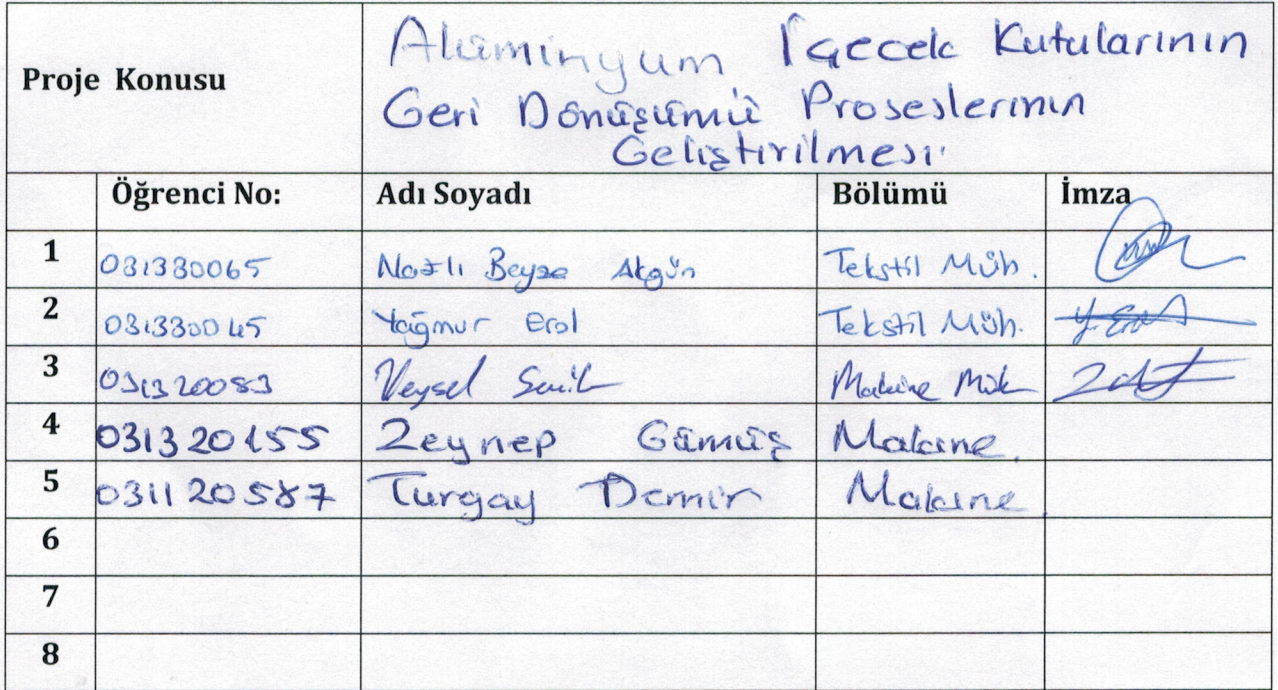 Proje Konusu
Alüminyum İçecek Kutularının
Geri Dönüşümü Proseslerinin
Geliştirilmesi
Öğrenci No: Adı Soyadı Bölümü İmza
1 031330065 Nazlı Beyza Akgün Tekstil Müh.
2 031330045 Yağmur Erol Tekstil Müh. Y. Erol
3 031320083 Veysel Makine Müh
4 031320155 Zeynep Gümüş Makine
5 031120587 Turgay Demir Makine
6
7
8